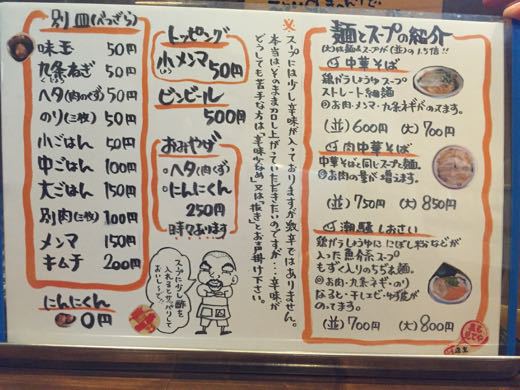 別皿(べつざら)
味玉 50円
九条ねぎ 50円
ヘタ(肉のくず) 50円
のり(三枚) 50円
小ごはん 50円
中ごはん 100円
大ごはん 150円
別肉(三枚) 100円
メンマ 150円
キムチ 200円
にんにくん
0円
トッピング
小メンマ
50円
ビンビール
500円
おみやげ
・ヘタ(肉くず)
・にんにくん
250円
時々あります
スープに少し酢を
入れるとサッパリして
おいし〜で。
※スープには少し辛味が入っておりますが激辛ではありません。
本当はそのままカロし上がっていただきたいのですが…辛味が
どうしても苦手な方は「辛味少なめ」又は「抜き」とお声掛け下さい。
麺とスープの紹介
(大)は麺&スープが(並)の1.5倍!!
中華そば
鶏がらしょうゆスープ
ストレート細麺
◎お肉・メンマ・九条ネギがのってます。
(並)600円 (大)700円
肉中華そば
中華そばと同じスープと麺。
◎お肉の量が増えます。
(並)750円 (大)850円
潮騒 しおさい
鶏がらしょうゆに にぼし粉などが
入った魚介系スープ
もずく入りのちぢれ麺。
◎お肉・九条ネギ・のり
なると・干しエビ・ゆず皮が
のってます。
(並)700円 (大)800円